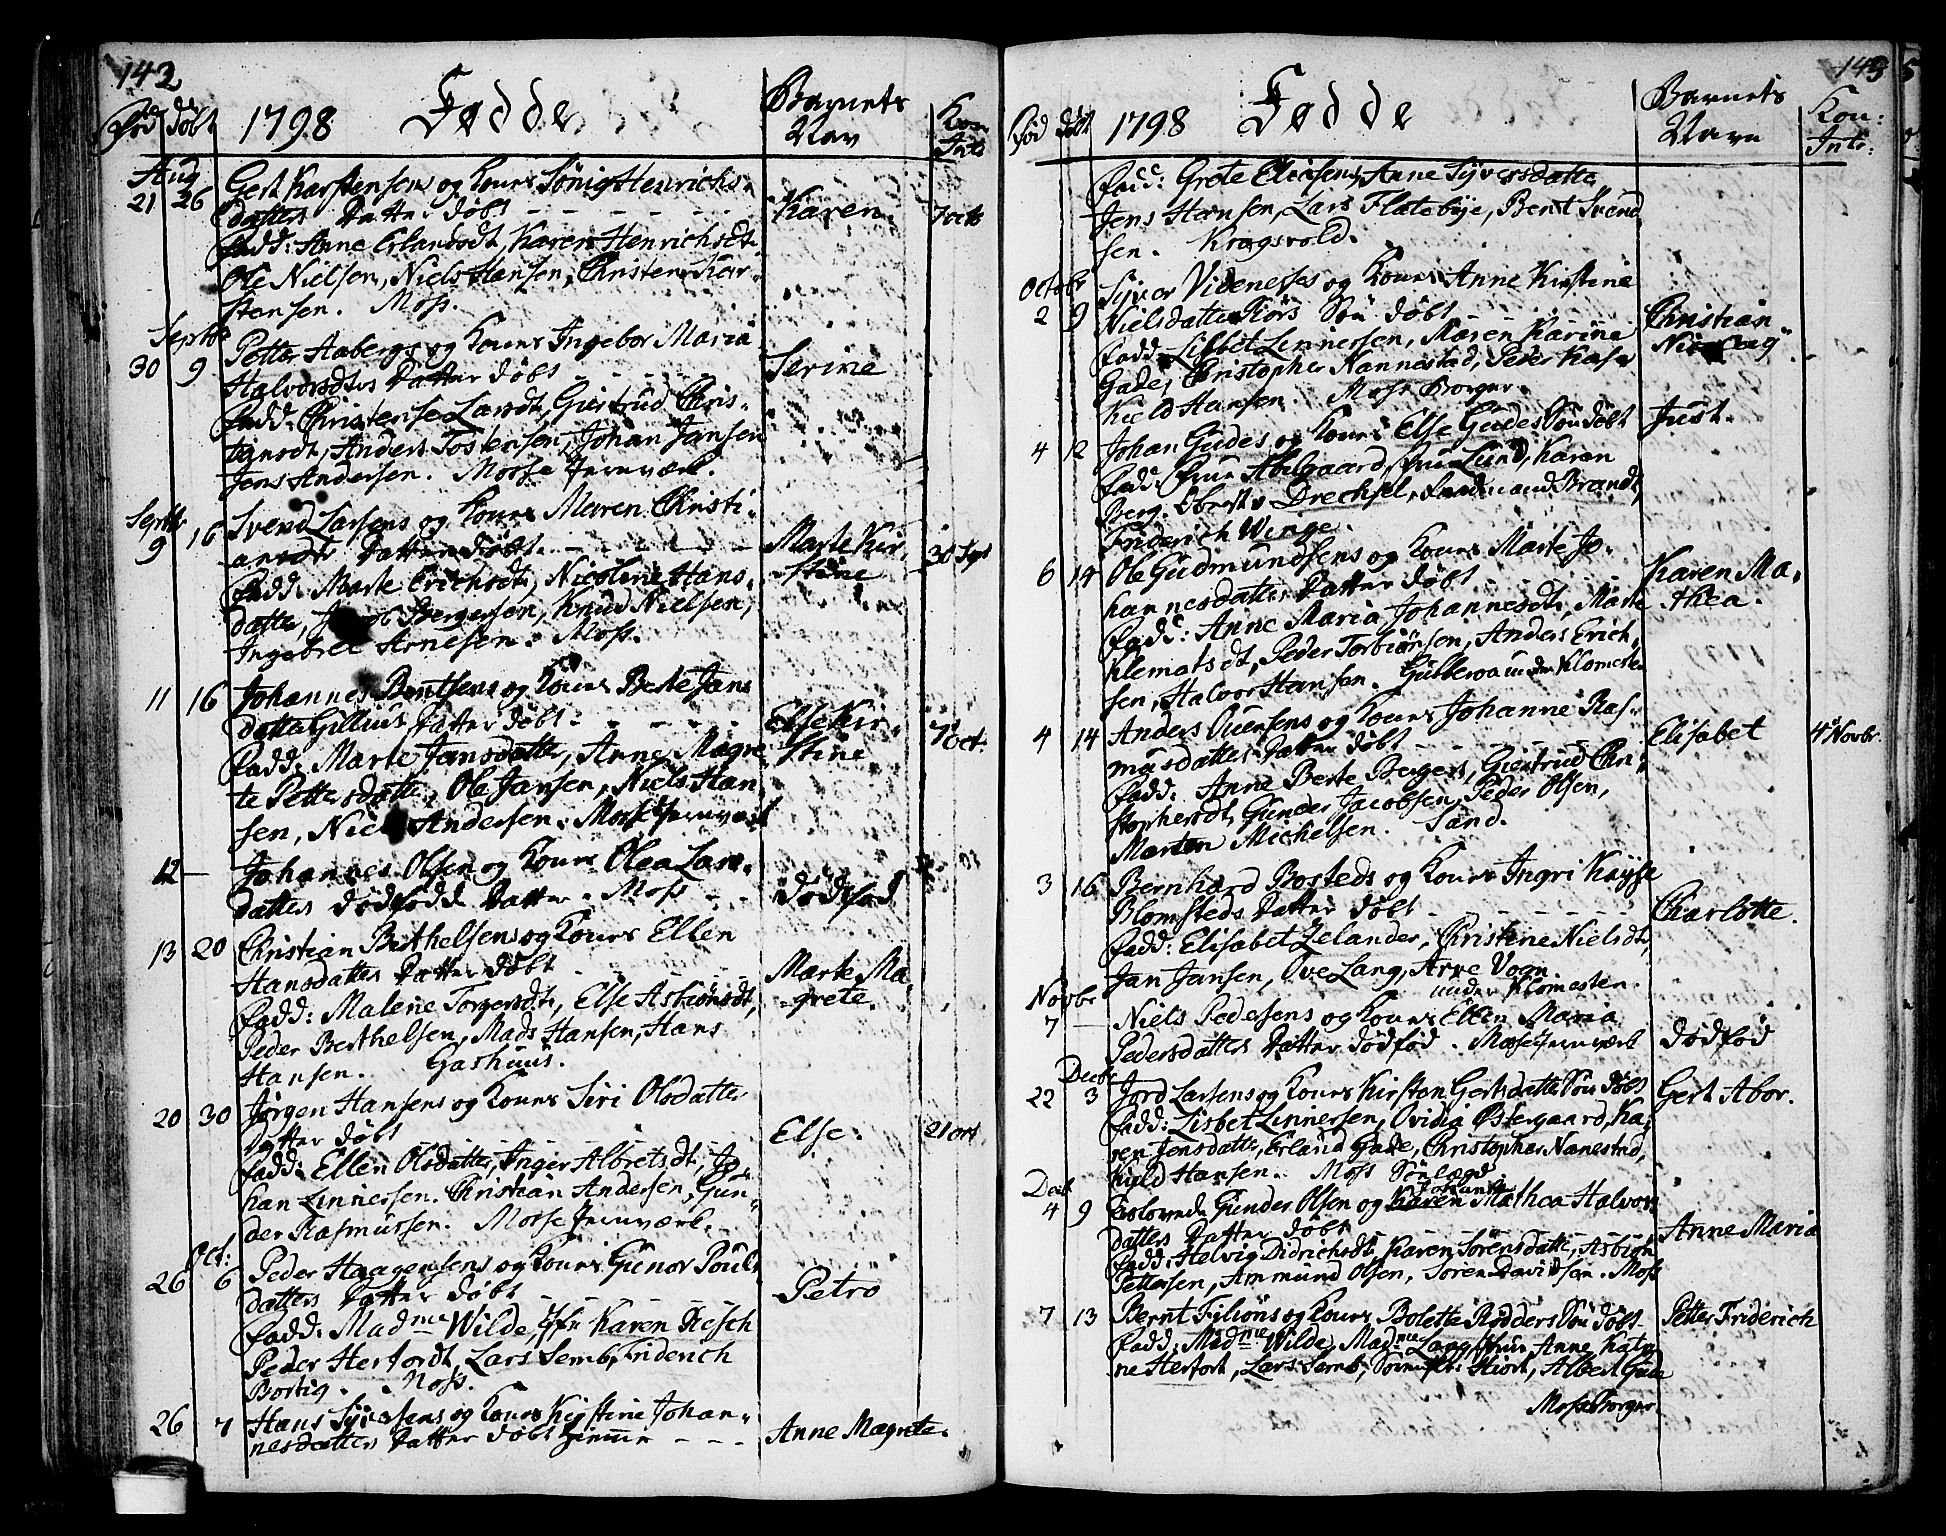 142
Fød døbt 1798 Fødde Barnets Nav Kon Intr
Aug
21 26 Gert Karstensens og Kones Sönig Henrichs-
datters Datter døbt - - - - Karen 7 octb
Fadd: Anne Erlandsdt, Karen Henrichsdt
Ole Nielsen, Niels Hansen, Christen Kar-
stensen. Moss.
Septbr
30 9 Petter Aabergs og Kones Ingebor Maria
Halvorsdtrs Datter døbt - - - - Serine
Fadd: Christense Larsdt, Giertrud Chris-
tiansdt, Anders Tostensen, Johan Jansen
Jens Andersen. Mosse Jernværk.
Septbr
9 16 Svend Larsens og Kones Maren Christi-
ansdtr Datter døbt - - - - Marte Kir- 30 Spt
Fadd: Marte Erichsdt, Nicoline Hans- stine
datter, Jacob Bergersen, Knud Nielsen,
Ingebret Arnesen. Moss.
11 16 Johannes Bentsens og Kones Berte Jans
datter Gillius Datter døbt - - - Else Kir-
Fadd: Marte Jansdatter, Anne Magre- stine 7 Oct.
te Pettersdatter, Ole Jansen, Niels Han-
sen, Niels Andersen. Mosse Jernværk
12 - Johannes Olsen og Kones Olea Lars-
datters dødfødd Datter. Moss - - dødfød
13 20 Christian Berthelsens og Kones Ellen
Hansdatters Datter døbt - - - Marte Ma-
Fadd: Malene Torgersdt, Else Asbiönsdt, grete.
Peder Berthelsen, Mads Hansen, Hans
Hansen. Gashuus.
20 30 Jörgen Hansens og Kones Siri Olsdatter
Datter døbt - - - - Else. 21 oct
Fadd: Ellen Olsdatter, Inger Albretsdt, Jo-
han Linnersen. Christian Andersen, Gun-
der Rasmussen. Mosse Jernværk.
Oct:
26 6 Peder Haagensens og Kones Gunor Pouls
datters Datter døbt - - - - Petro
Fadd: Madme Wilde, Jfr Karen Resch
Peder Hertordt, Lars Semb, Friderich
Bortig. Moss.
26 7 Hans Syversens og Kones Kirstine Johan-
nesdatters Datter døbt hjemme - - - Anne Magrete.
143
Fød døbt 1798 Fødde Barnets Navn Kon: Intr:
Fadd: Grete Eliesens, Anne Syversdatter
Jens Hansen, Lars Flatebye, Bent Svend
sen. Kragsvold.
Octobr
2 9 Syver Videnesses og Kones Anne Kirstine
Nielsdatter Körs Sön døbt - - - Christian
Fadd: Lisbet Linnersen, Maren Karine
Gade, Christopher Nannestad, Peder Kas-
Kield Hansen. Moss Borger.
4 12 Johan Gudes og Kones Else Gudes Sön døbt Just.
Fadd: Frue Abilgaard, Frue Lund, Karen
Berg. Oberste Drechsel, Ferdinand Brandt,
Friderich Winge.
6 14 Ole Gudmundsens og Kones Marte Jo-
hannesdatters Datter døbt - - - Karen Ma-
Fadd: Anne Maria Johannesdt, Marte thea.
Klematsdt, Peder Torbiönsen, Anders Erich-
sen, Halvor Hansen. Gubberoa under Klomesten
4 14 Anders Ouersens og Kones Johanne Ras-
musdatters Datter døbt - - - Elisabet 4 Novbr.
Fadd: Anne Berte Bergers, Giertrud Chri-
stophersdt, Gunder Jacobsen, Peder Olsen,
Marten Michelsen. Sand.
3 16 Bernhard Bosteds og Kones Ingri Kayse
Blomsteds Datter døbt - - - Charlotte.
Fadd: Elisabet Zelander, Christine Nielsdt,
Jan Jansen, Ove Lang, Arve Vogn.
under Klomesten.
Novbr
7 - Niels Pedesens og Kones Ellen Maria
Pedersdatters Datter dødfød. Mosse Jernværk dødfød
Decbr
22 3 Jord Larsens og Kones Kirsten Gertsdatter Sön døbt Gert Abor.
Fadd: Lisbet Linnersen, Ovidia Østergaard, Ka-
ren Jensdatter, Erland Gade, Christopher Nanestad,
Kield Hansen. Moss Sönlægd.
Decbr Johanne
4 9 Trolovede Gunder Olsen og Karen Mathea Halvors
datters Datter døbt - - - Anne Maria
Fadd: Helvig Didrichsdt, Karen Sörensdatter, Asbiörn
Pettersen, Ammund Olsen, Sören Davidsen. Moss
7 13 Bernt Filions og Kones Bolette Rödders Sön døbt Petter Friderich
Fadd: Madme Wilde, Madme Lang, Frue Anne Katri-
ne Hertort, Lars Semb, Hiort, Albert Gude
Moss Borger